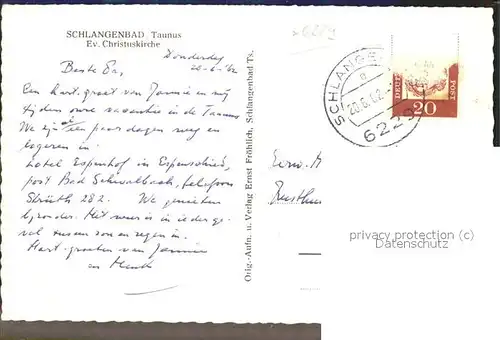 SCHLANGENBAD, Taunus
Ev. Christuskirche
Donderdag
Beste
Een hart. groet van Jannie en mij
tijdens onze vacantie in de Taunus
We zijn een paar dagen weg en
logeren in:
hotel Espenhof in Espenschied,
post Bad Schwalbach, telefoon
Strüth 282. We genieten
bijzonder. Het weer is in ieder ge-
val tussen zon en regen in.
Hart. groeten van Jannie
en Henk
Orig.-Aufn. u. Verlag Ernst Fröhlich, Schlangenbad Ts.
6229
SCHLANGE
20.6.62
6229
DEUT
POST
20
privacy protection (c)
Datenschutz